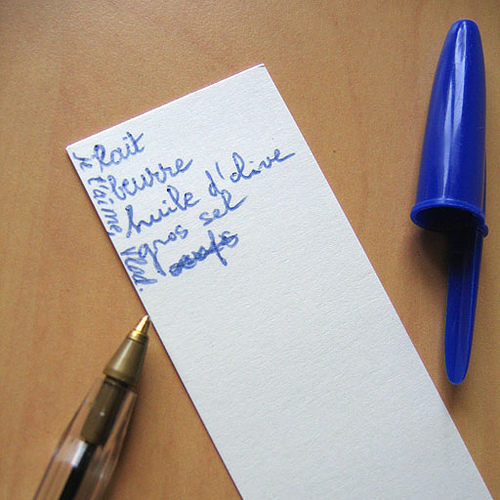 lait
beurre
huile d'olive
gros sel
oeufs
je t'aime, Vlad.